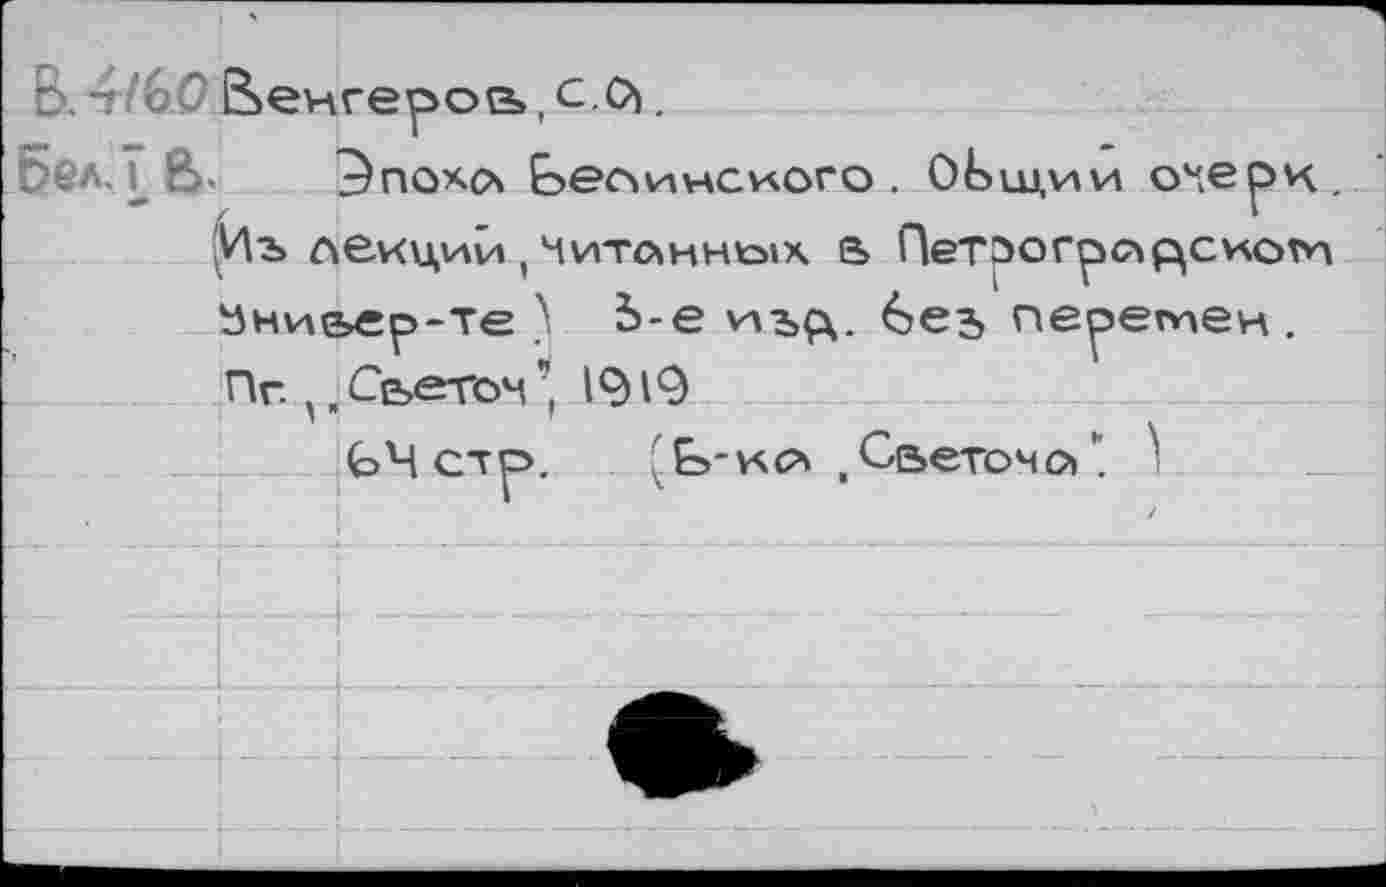 В.4160 Венгеров, С.А.
Бел. I В. Эпоха Белинского. Общий очерк.
(Из лекций, читанных в Петроградском
Универ-те) 3-е изд. без перемен.
Пг., „Светоч", 1919
64 стр. (Б-ка „Светоча".)